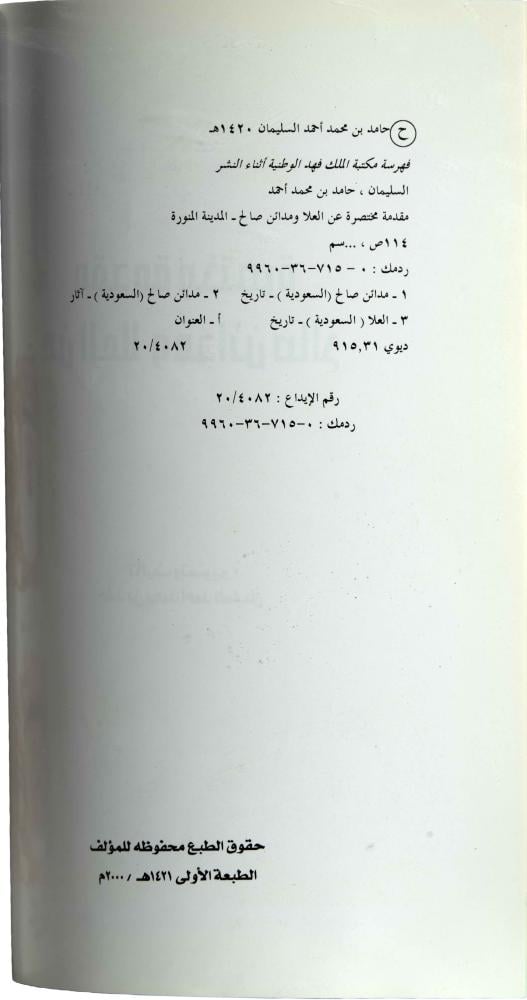 ح حامد بن محمد أحمد السليمان ١٤٢٠هـ
فهرسة مكتبة الملك فهد الوطنية أثناء النشر
السليمان ، حامد بن محمد أحمد
مقدمة مختصرة عن العلا ومدائن صالح ـ المدينة المنورة
١١٤ص ، ...سم
ردمك : ٠ - ٧١٥-٣٦-٩٩٦٠
١ ـ مدائن صالح (السعودية ) ـ تاريخ ٢ ـ مدائن صالح (السعودية ) ـ آثار
٣ ـ العلا ( السعودية ) ـ تاريخ أ ـ العنوان
ديوي ٩١٥,٣١ ٢٠/٤٠٨٢
رقم الإيداع : ٢٠/٤٠٨٢
ردمك : ٠-٧١٥-٣٦-٩٩٦٠
حقوق الطبع محفوظه للمؤلف
الطبعة الأولى ١٤٢١هـ / ٢٠٠٠م